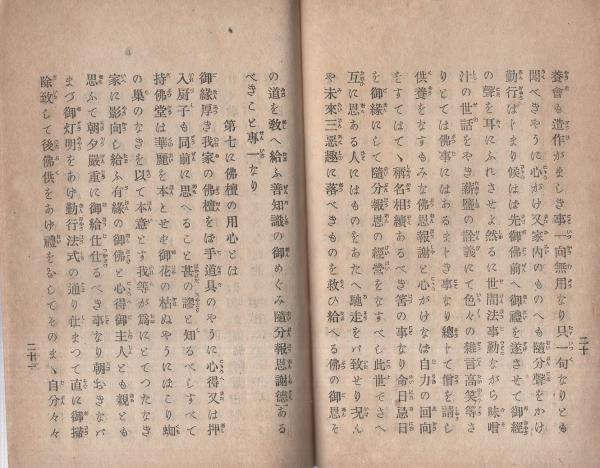 養會も造作がましき事一向無用なり只一句なりとも
聞べきやうに心がけ又家內のものへも隨分聲をかけ
勤行はじまり候はゞ先御佛前へ御禮を遂させて御經
の聲を耳にふれさせよ然るに世間法事勤ながら味噌
汁の世話をやき薪鹽の詮義にて色々の雜言高笑等さ
りとては佛事にはあるまじき事なり總じて僧を請し
供養をなすもみな佛恩報謝と心がけなば自力の回向
をすてはてゝ稱名相續あるべき筈の事なり命日忌日
を御緣にして隨分報恩の經營をなすべし此世でさへ
互に恩ある人にはものをあたへ馳走をバ致せり况ん
や未來三惡趣に落べきものを救ひ給へる佛の御恩を
二十
の道を敎へ給ふ善知識の御めぐみ隨分報恩謝德ある
べきこと專一なり
第七に佛壇の用心とは
御緣厚き我家の佛壇をば手道具のやうに心得又は押
入厨子も同前に思へること甚の謬と知るべしすべて
持佛堂は華麗を本とせず御花の枯ぬやうにほこり蜘
の巢のなきを以て本意とす我等が爲にとてつたなき
家に影向し給ふ有緣の御佛と心得御主人とも親とも
思ふて朝夕嚴重に御給仕仕るべき事なり朝おきなバ
まづ御灯明をあげ勤行法式の通り仕まつて直に御掃
除致して後佛供をあげ禮をなしてそのまゝ自分々々
二十一